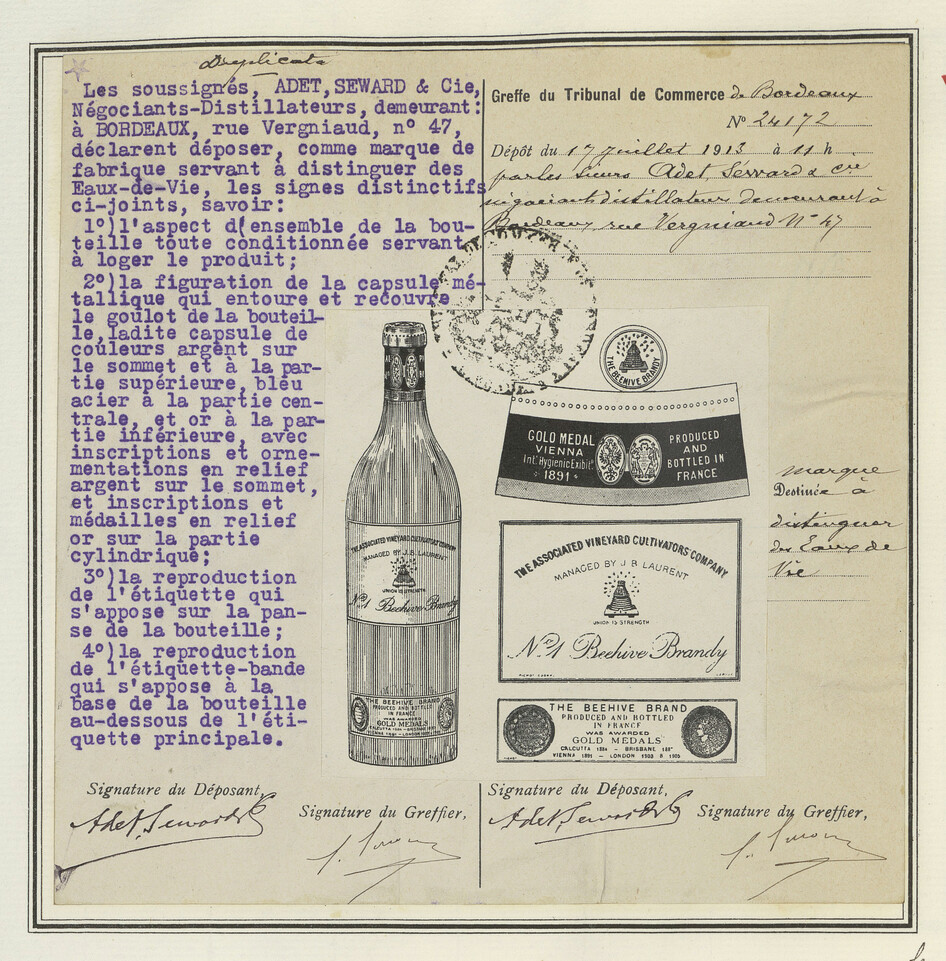 Duplicata
Les soussignés, ADET, SEWARD & Cie,
Négociants-Distillateurs, demeurant:
à BORDEAUX, rue Vergniaud, n° 47,
déclarent déposer, comme marque de
fabrique servant à distinguer des
Eaux-de-Vie, les signes distinctifs
ci-joints, savoir:
1°)l'aspect d(ensemble de la bou-
teille toute conditionnée servant
à loger le produit;
2°)la figuration de la capsule mé-
tallique qui entoure et recouvre
le goulot de la bouteil-
le, ladite capsule de
couleurs argent sur
le sommet et à la par-
tie supérieure, bleu
acier à la partie cen-
trale, et or à la par-
tie inférieure, avec
inscriptions et orne-
mentations en relief
argent sur le sommet,
et inscriptions et
médailles en relief
or sur la partie
cylindrique;
3°)la reproduction
de l'étiquette qui
s'appose sur la pan-
se de la bouteille;
4°)la reproduction
de l'étiquette-bande
qui s'appose à la
base de la bouteille
au-dessous de l'éti-
quette principale.
Greffe du Tribunal de Commerce de Bordeaux
N° 24172
Dépôt du 17 juillet 1913 à 11 h
par les sieurs Adet Seward & Cie
négociants distillateurs demeurant à
Bordeaux, rue Vergniaud N° 47
THE BEEHIVE BRANDY
GOLD MEDAL
VIENNA
Int.l Hygienic Exhibit.n
1891
PRODUCED
AND
BOTTLED IN
FRANCE
marque
Destinée à
distinguer
des Eaux de
Vie
THE ASSOCIATED VINEYARD CULTIVATORS COMPANY
MANAGED BY J. B. LAURENT
UNION IS STRENGTH
N° 1 Beehive Brandy
THE BEEHIVE BRAND
PRODUCED AND BOTTLED
IN FRANCE
WAS AWARDED
GOLD MEDALS
THE ASSOCIATED VINEYARD CULTIVATORS COMPANY
MANAGED BY J B LAURENT
UNION IS STRENGTH
N° 1 Beehive Brandy
THE BEEHIVE BRAND
PRODUCED AND BOTTLED
IN FRANCE
WAS AWARDED
GOLD MEDALS
VIENNA 1891 - LONDON
Signature du Déposant,
Adet Seward & Cie
Signature du Greffier,
Signature du Déposant,
Adet Seward & Cie
Signature du Greffier,